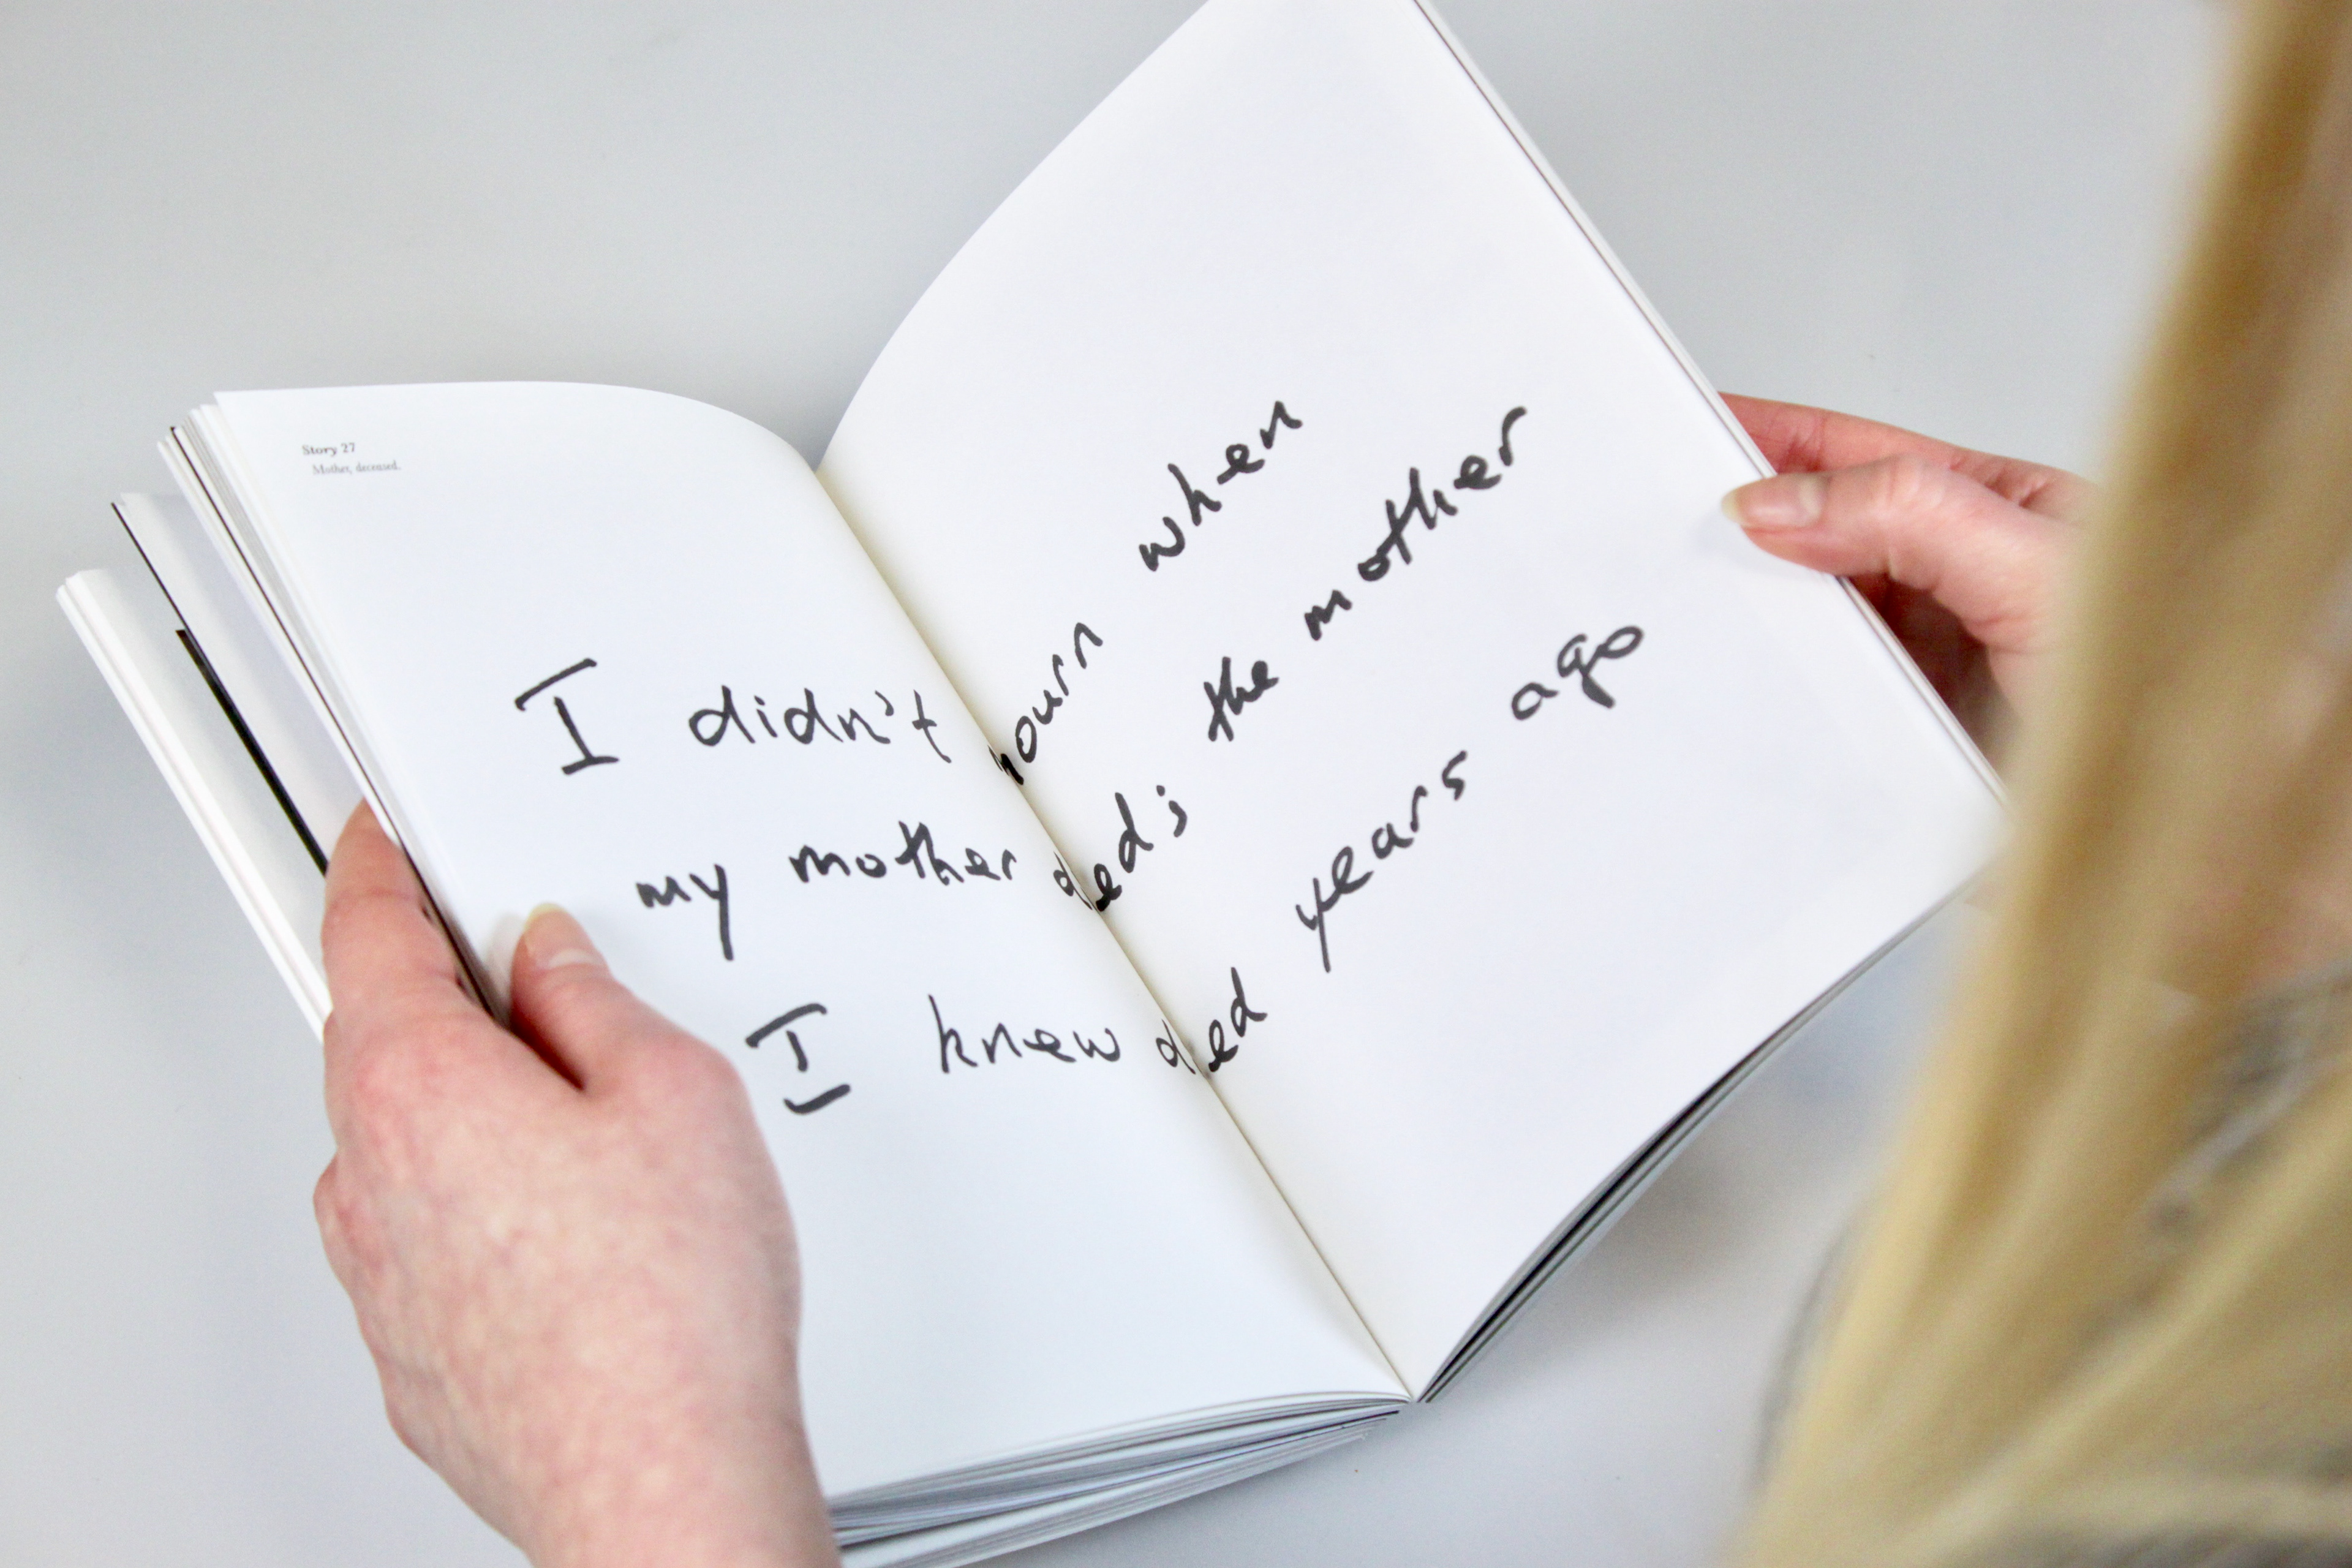 Story 27
Mother, deceased.
I didn't mourn when
my mother died; the mother
I knew died years ago